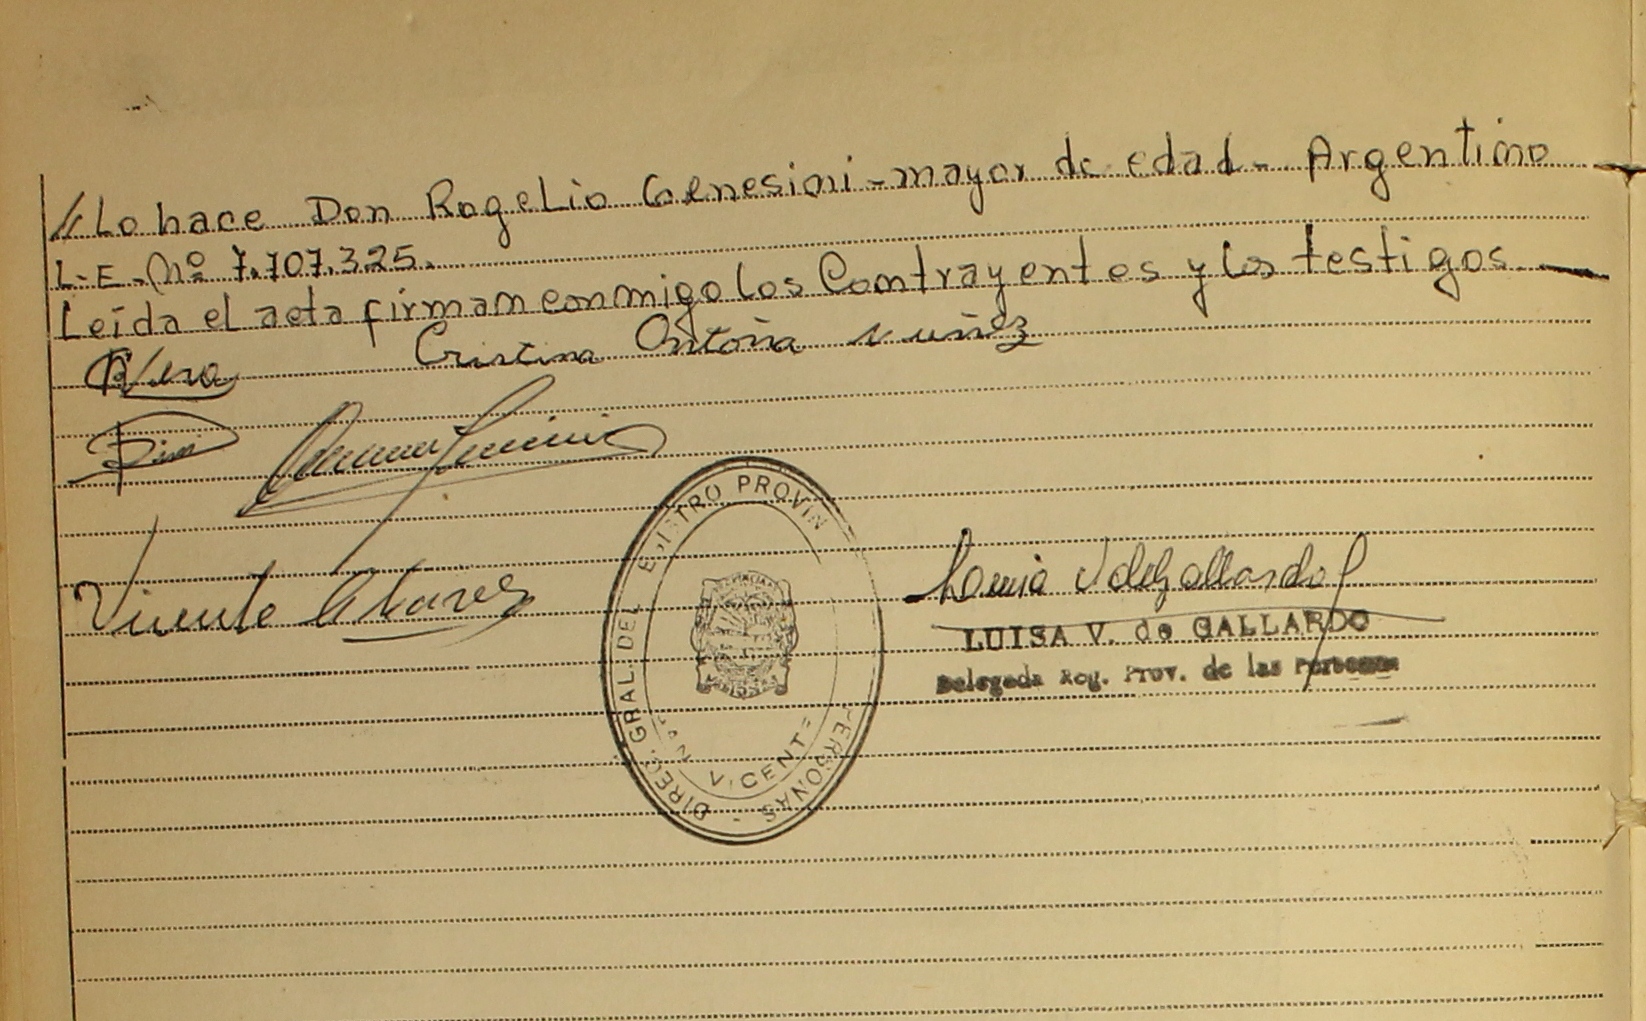 //Lo hace Don Rogelio Genesini - mayor de edad - Argentino
L.E. Nº 7.707.325.
Leída el acta firman conmigo los Contrayentes y los testigos
Cristina Antonia Nuñez
Vicente
Luisa V. de Gallardo
LUISA V. de GALLARDO
Delegada Reg. Prov. de las Personas
DIREC. GRAL DEL EGISTRO PROVIN PERSONAS
VICENTE